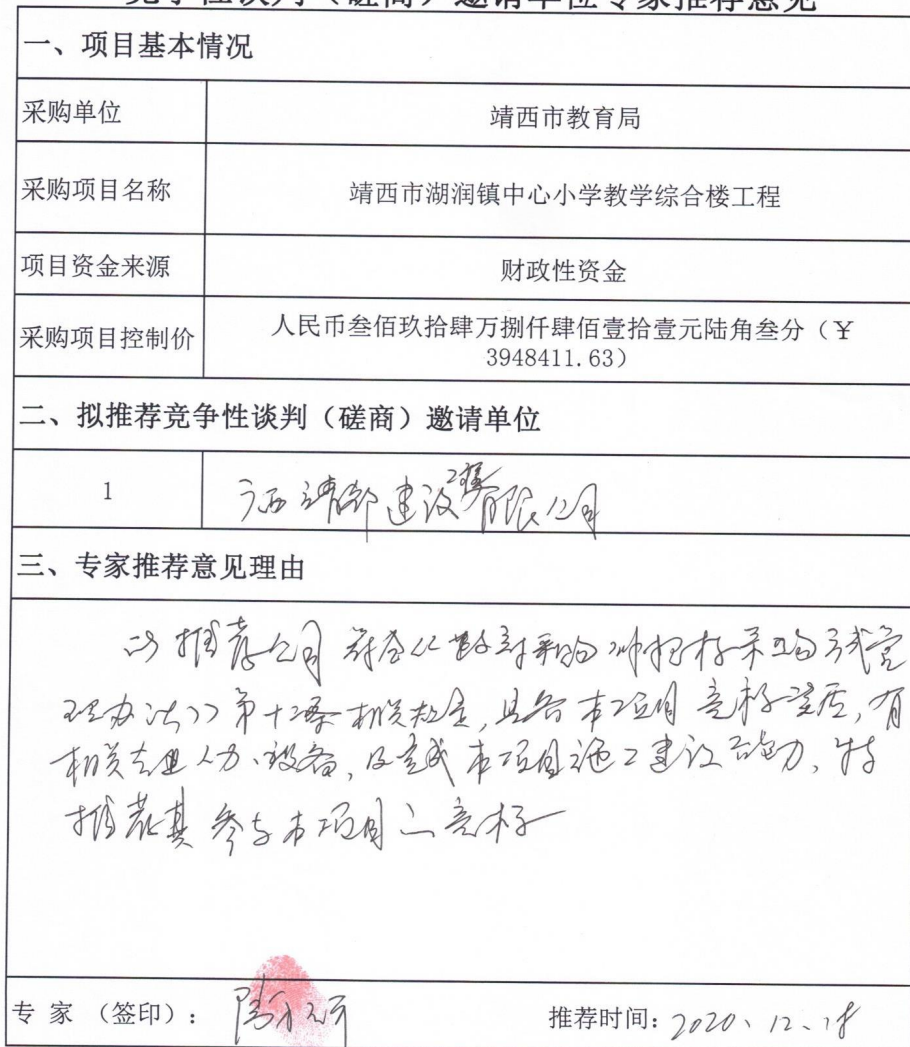 竞争性谈判（磋商）邀请单位专家推荐意见
一、项目基本情况
采购单位
靖西市教育局
采购项目名称
靖西市湖润镇中心小学教学综合楼工程
项目资金来源
财政性资金
采购项目控制价
人民币叁佰玖拾肆万捌仟肆佰壹拾壹元陆角叁分（￥
3948411.63）
二、拟推荐竞争性谈判（磋商）邀请单位
1
广西靖都建设工程有限公司
三、专家推荐意见理由
推荐公司 符合《政府采购非招标采购方式管
理办法》第十二条相关规定，具备本项目竞标资质，有
相关专业人力、设备，及完成本项目施工建设能力，特
推荐其参与本项目之竞标
专 家 （签印）：
推荐时间：2020、12、18